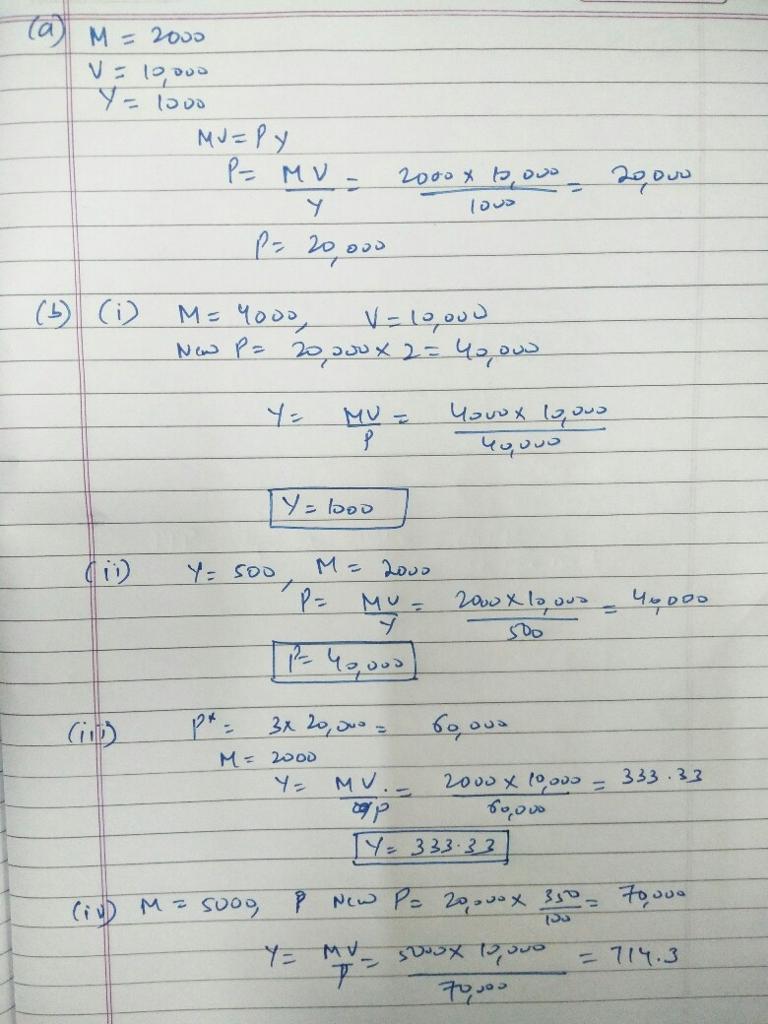 (a) M = 2000
V = 10,000
Y = 1000
MV = PY
P = MV/Y = 2000 x 10,000/1000 = 20,000
P = 20,000
(b) (i) M = 4000, V = 10,000
New P = 20,000 x 2 = 40,000
Y = MV/P = 4000 x 10,000/40,000
Y = 1000
(ii) Y = 500, M = 2000
P = MV/Y = 2000 x 10,000/500 = 40,000
P = 40,000
(iii) P* = 3 x 20,000 = 60,000
M = 2000
Y = MV/P = 2000 x 10,000/60,000 = 333.33
Y = 333.33
(iv) M = 5000, P New P = 20,000 x 350/100 = 70,000
Y = MV/P = 5000 x 10,000/70,000 = 714.3